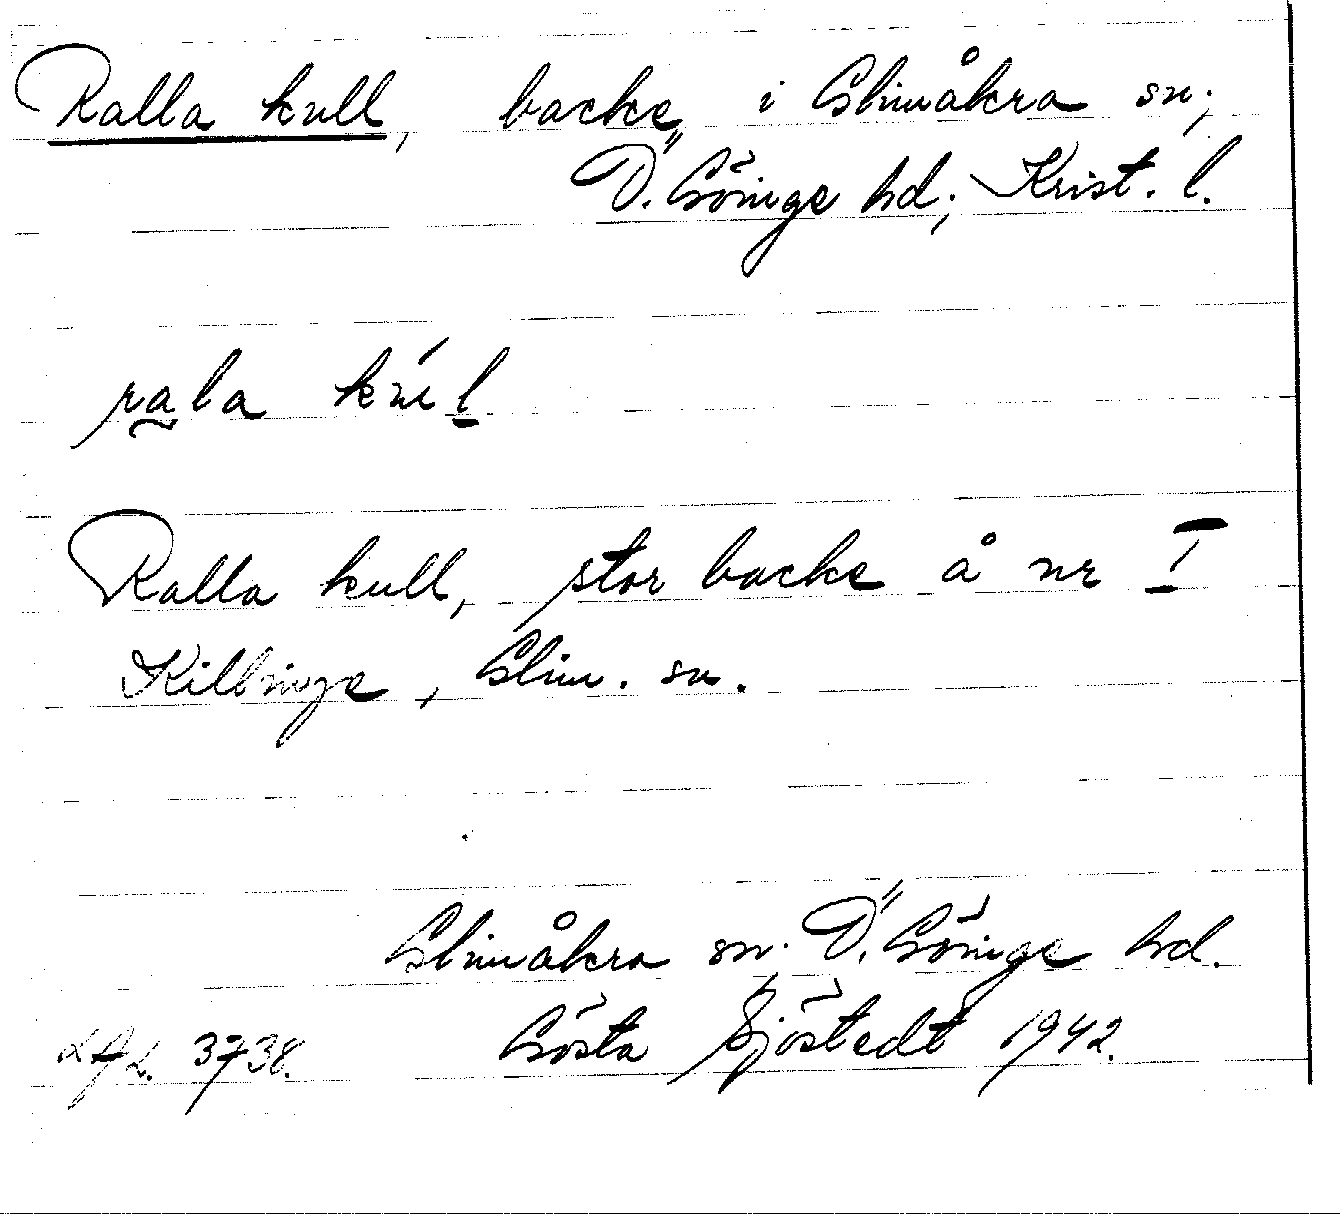 Ralla kull, backe i Glimåkra sn;
Ö. Göinge hd; Krist. l.
rala kúl
Ralla kull, stor backe å nr I
Killinge, Glim. sn.
Glimåkra sn. Ö. Göinge hd.
Gösta Sjöstedt 1942.
LAL. 3738.